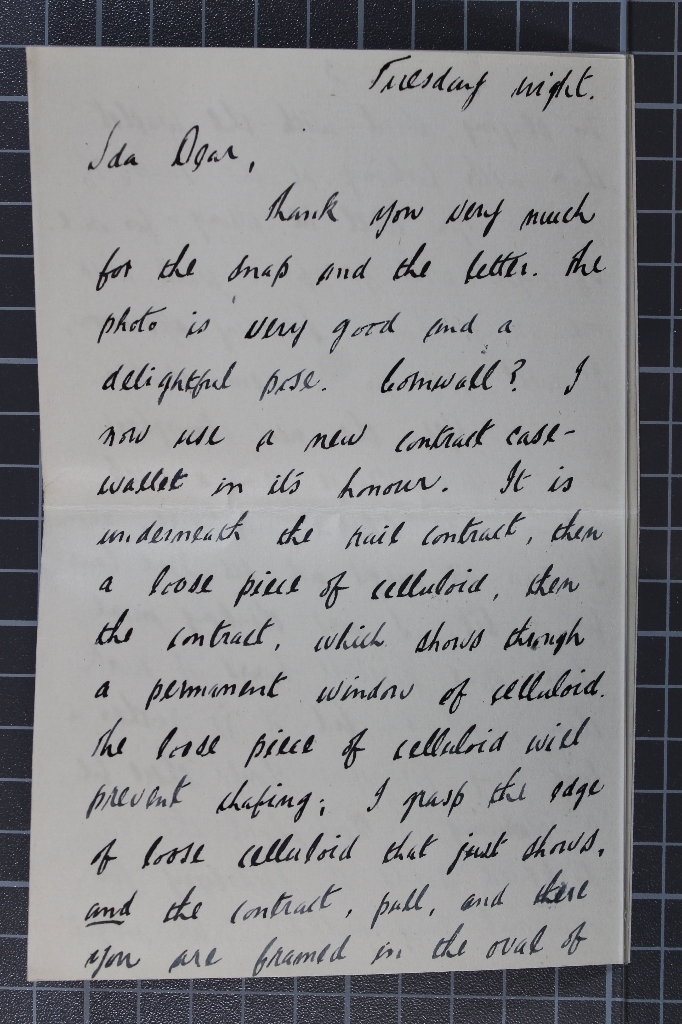 Tuesday night.
Ida Dear,
Thank you very much
for the snap and the letter. The
photo is very good and a
delightful pose. Cornwall? I
now use a new contract case-
wallet in it's honour. It is
underneath the rail contract, then
a loose piece of celluloid, then
the contract, which shows through
a permanent window of celluloid.
The loose piece of celluloid will
prevent chafing; I grasp the edge
of loose celluloid that just shows,
and the contract, pull, and there
you are framed in the oval of